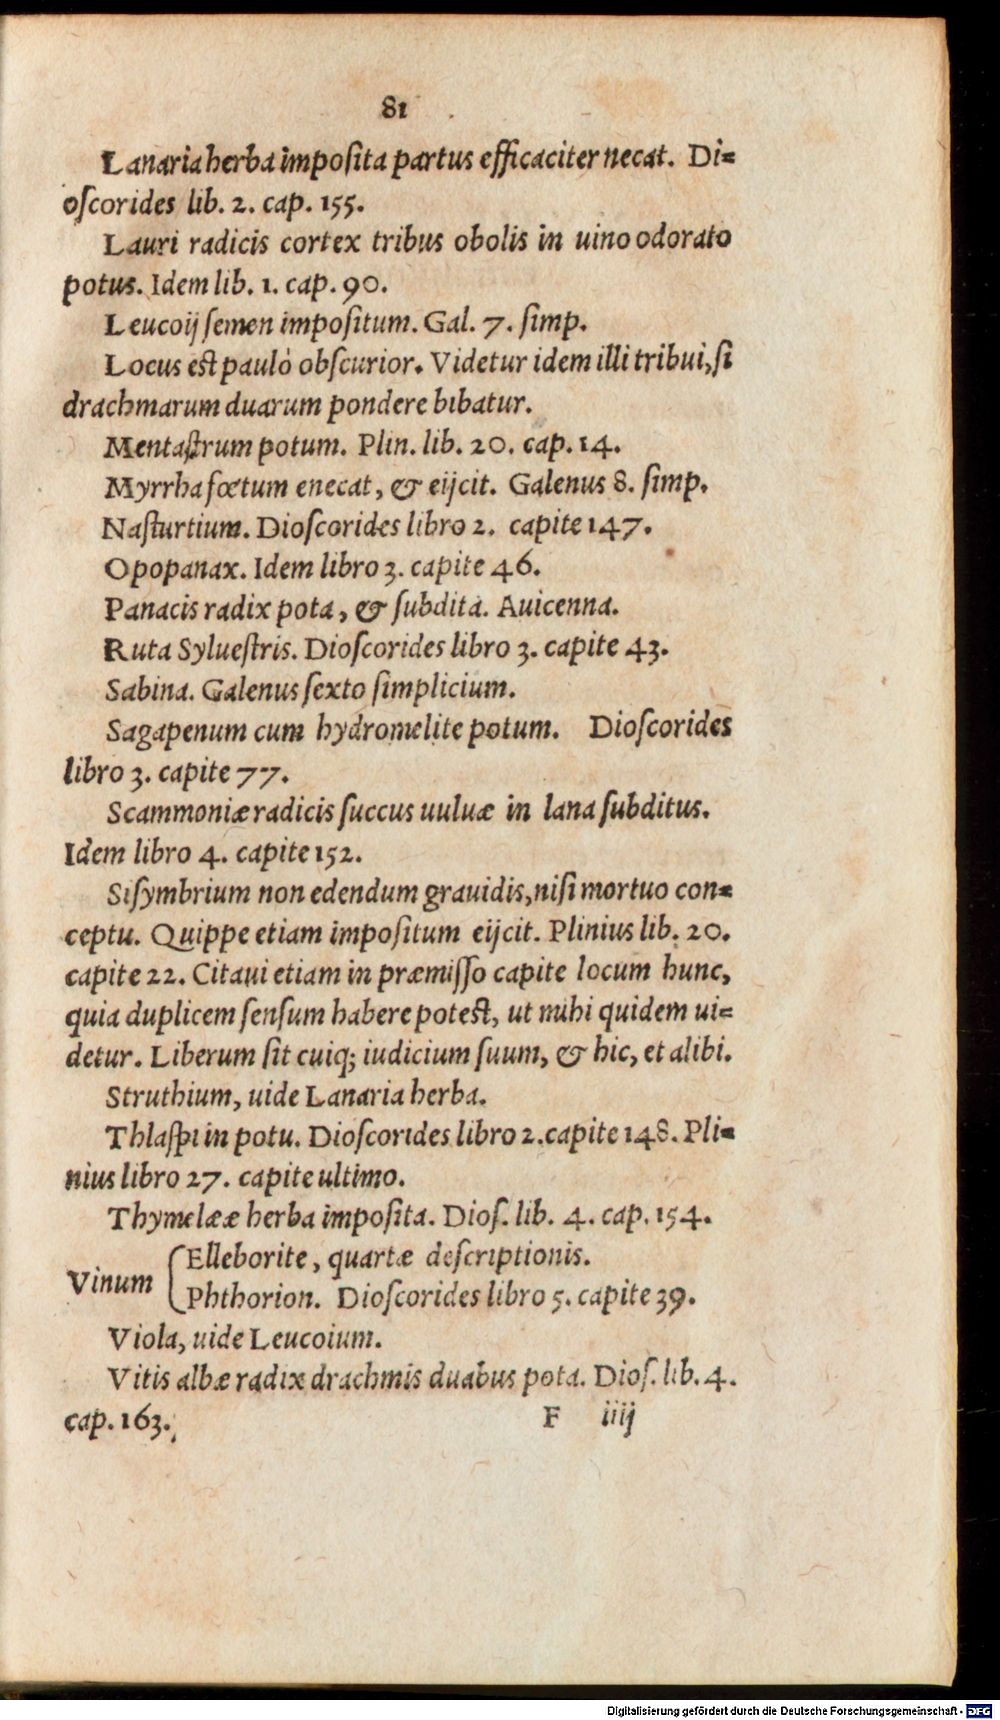 81
Lanaria herba imposita partus efficaciter necat. Di=
oſcorides lib. 2. cap. 155.
Lauri radicis cortex tribus obolis in uino odorato
potus. Idem lib. 1. cap. 90.
Leucoij ſemen impoſitum. Gal. 7. ſimp.
Locus est paulò obſcurior. Videtur idem illi tribui, ſi
drachmarum duarum pondere bibatur.
Mentaſtrum potum. Plin. lib. 20. cap. 14.
Myrrha fœtum enecat, & eijcit. Galenus 8. ſimp.
Naſturtium. Dioſcorides libro 2. capite 147.
Opopanax. Idem libro 3. capite 46.
Panacis radix pota, & ſubdita. Auicenna.
Ruta Sylueſtris. Dioſcorides libro 3. capite 43.
Sabina. Galenus ſexto ſimplicium.
Sagapenum cum hydromelite potum. Dioſcorides
libro 3. capite 77.
Scammoniæ radicis ſuccus uuluæ in lana ſubditus.
Idem libro 4. capite 152.
Siſymbrium non edendum grauidis, niſi mortuo con=
ceptu. Quippe etiam impoſitum eijcit. Plinius lib. 20.
capite 22. Citaui etiam in præmiſſo capite locum hunc,
quia duplicem ſenſum habere poteſt, ut mihi quidem ui=
detur. Liberum ſit cuiq; iudicium ſuum, & hic, et alibi.
Struthium, uide Lanaria herba.
Thlaſpi in potu. Dioſcorides libro 2. capite 148. Pli=
nius libro 27. capite ultimo.
Thymelææ herba impoſita. Dioſ. lib. 4. cap. 154.
Vinum { Elleborite, quartæ deſcriptionis.
Phthorion. Dioſcorides libro 5. capite 39.
Viola, uide Leucoium.
Vitis albæ radix drachmis duabus pota. Dioſ. lib. 4.
cap. 163. F iiij
Digitalisierung gefördert durch die Deutsche Forschungsgemeinschaft - DFG